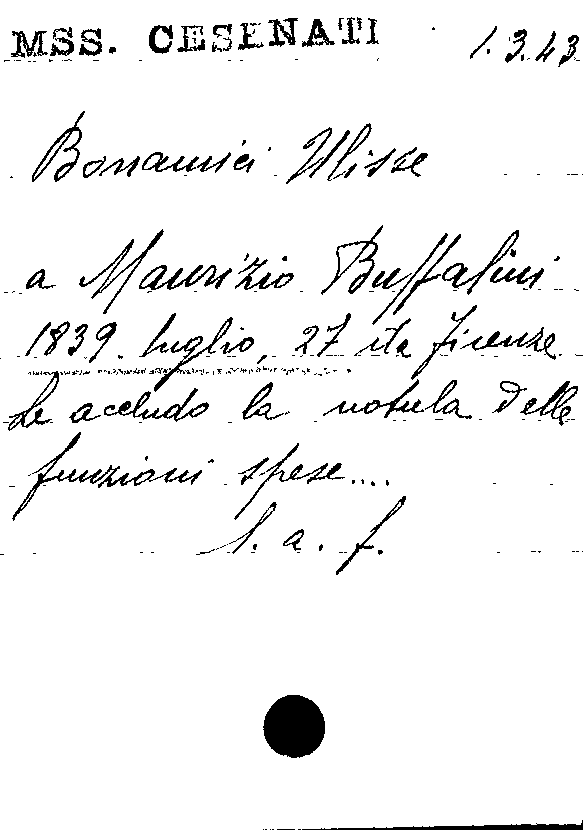 MSS. CESENATI 1.3.43
Bonamici Ulisse
a Maurizio Buffalini
1839. luglio, 27 da Firenze
Le accludo la notula delle
funzioni spese....
l. a. f.